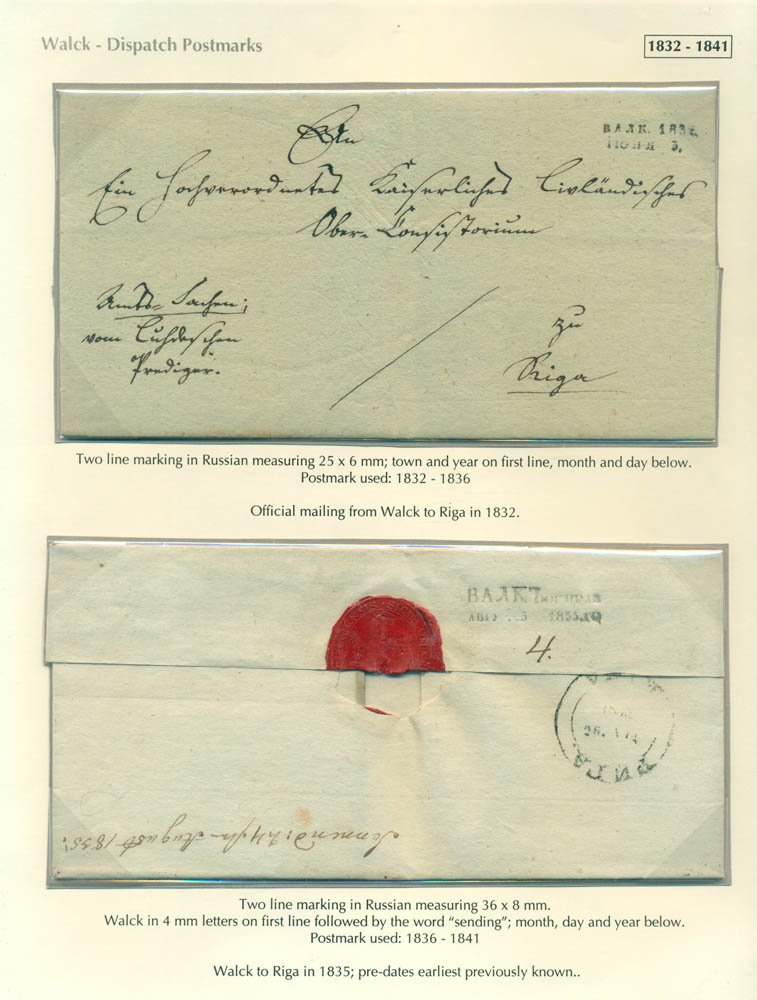 Walck - Dispatch Postmarks
1832 - 1841
An
ВАЛК. 1832.
ІЮНЯ 3.
Ein Hochverordnetes Kaiserliches Livländisches
Ober-Consistorium
Amts-Sachen;
vom Luhdeschen
Prediger.
zu
Riga
Two line marking in Russian measuring 25 x 6 mm; town and year on first line, month and day below.
Postmark used: 1832 - 1836
Official mailing from Walck to Riga in 1832.
ВАЛКЪ
1835.ГО
4.
РИГА
August 1835.
Two line marking in Russian measuring 36 x 8 mm.
Walck in 4 mm letters on first line followed by the word “sending”; month, day and year below.
Postmark used: 1836 - 1841
Walck to Riga in 1835; pre-dates earliest previously known..